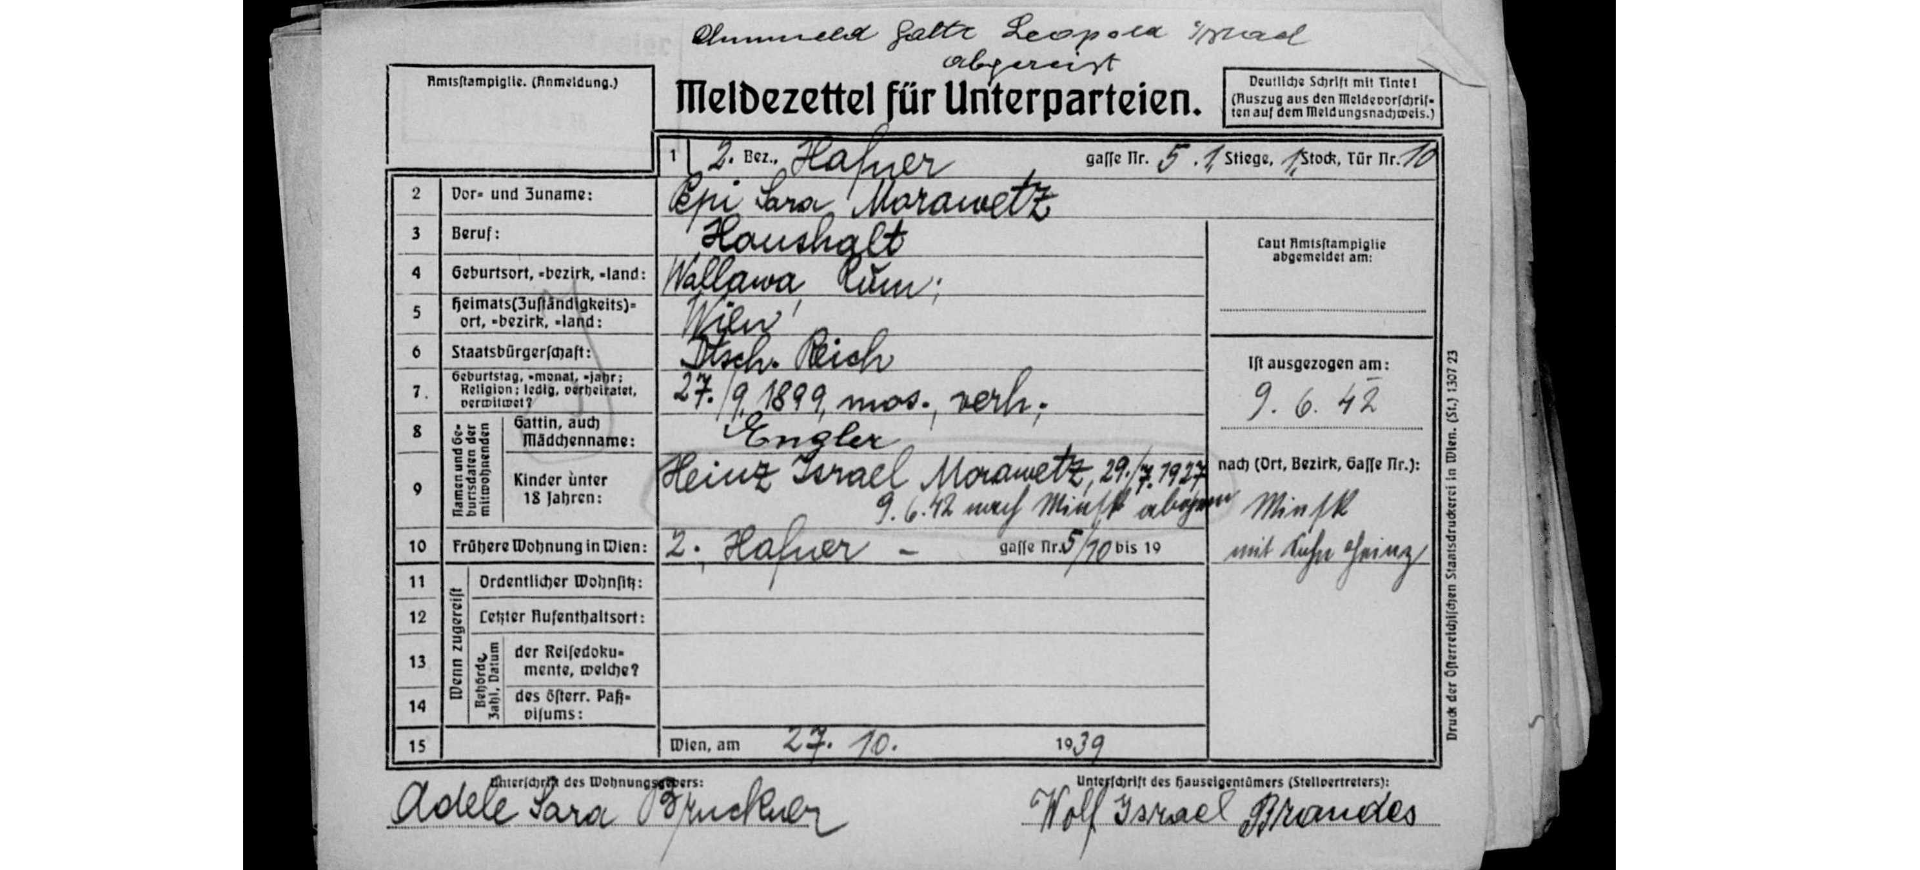 Anmeld Gatte Leopold Israel
abgereist
Amtsstampiglie. (Anmeldung.)
Meldezettel für Unterparteien.
Deutliche Schrift mit Tinte!
(Auszug aus den Meldevorschrif-
ten auf dem Meldungsnachweis.)
1 2. Bez., Hafner gasse Nr. 5. 1, Stiege, 1, Stock, Tür Nr. 10
2 Vor- und Zuname: Pepi Sara Morawetz
3 Beruf: Haushalt
Laut Amtsstampiglie
abgemeldet am:
4 Geburtsort, -bezirk, -land: Wallawa, Rum;
5 Heimats(Zuständigkeits)-
ort, -bezirk, -land: Wien
6 Staatsbürgerschaft: Dtsch. Reich
Ist ausgezogen am:
9. 6. 42
7. Geburtstag, -monat, -jahr;
Religion; ledig, verheiratet,
verwitwet? 27./9. 1899, mos., verh.
Namen und Ge-
burtsdaten der
mitwohnenden
8 Gattin, auch
Mädchenname: Engler
9 Kinder unter
18 Jahren: Heinz Israel Morawetz, 29./7. 1927
9.6.42 nach Minsk
nach (Ort, Bezirk, Gasse Nr.):
Minsk
mit Sohn Heinz
10 Frühere Wohnung in Wien: 2. Hafner – gasse Nr. 5/10 bis 19
Wenn zugereist
11 Ordentlicher Wohnsitz:
12 Letzter Aufenthaltsort:
Behörde,
Zahl, Datum
13 der Reisedoku-
mente, welche?
14 des österr. Paß-
visums:
15 Wien, am 27. 10. 1939
Druck der Österreichischen Staatsdruckerei in Wien. (St.) 1307 23
Unterschrift des Wohnungsgebers:
Adele Sara Bruckner
Unterschrift des Hauseigentümers (Stellvertreters):
Wolf Israel Brandes